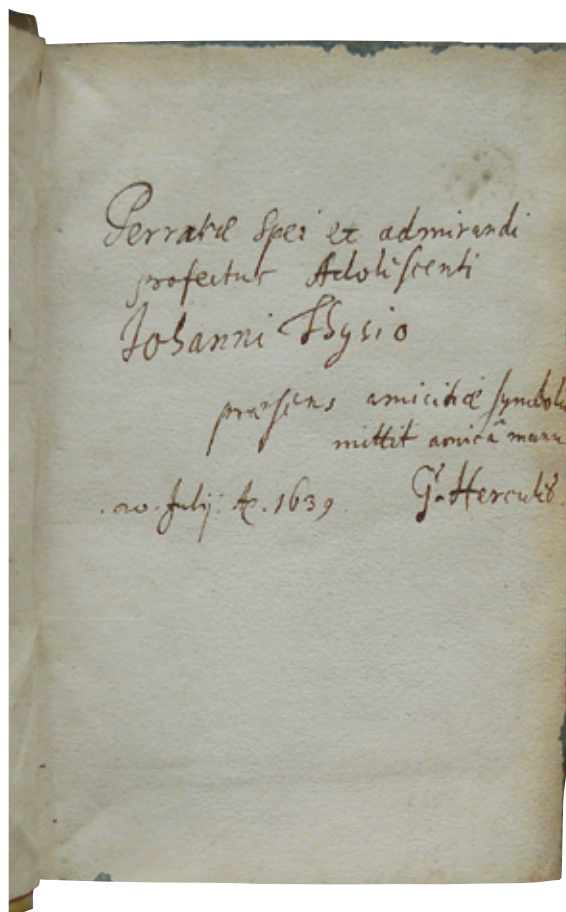 Perraræ Spei et admirandi
profectus Adolescenti
Iohanni Thysio
præsens amicitiæ symbolu
mittit amicâ manu
20. Julij. Aº. 1639. G. Herculis.